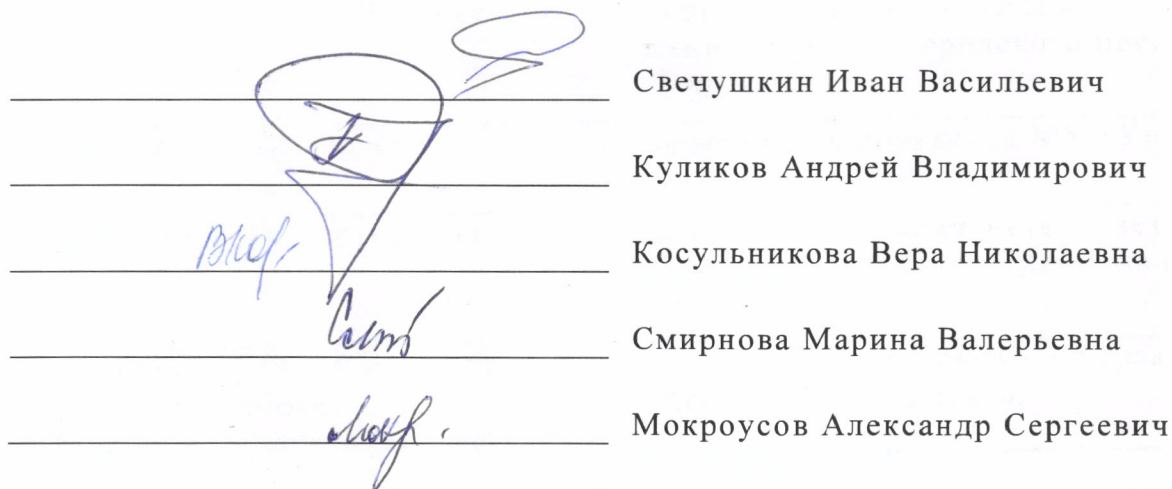 Свечушкин Иван Васильевич
Куликов Андрей Владимирович
Косульникова Вера Николаевна
Смирнова Марина Валерьевна
Мокроусов Александр Сергеевич